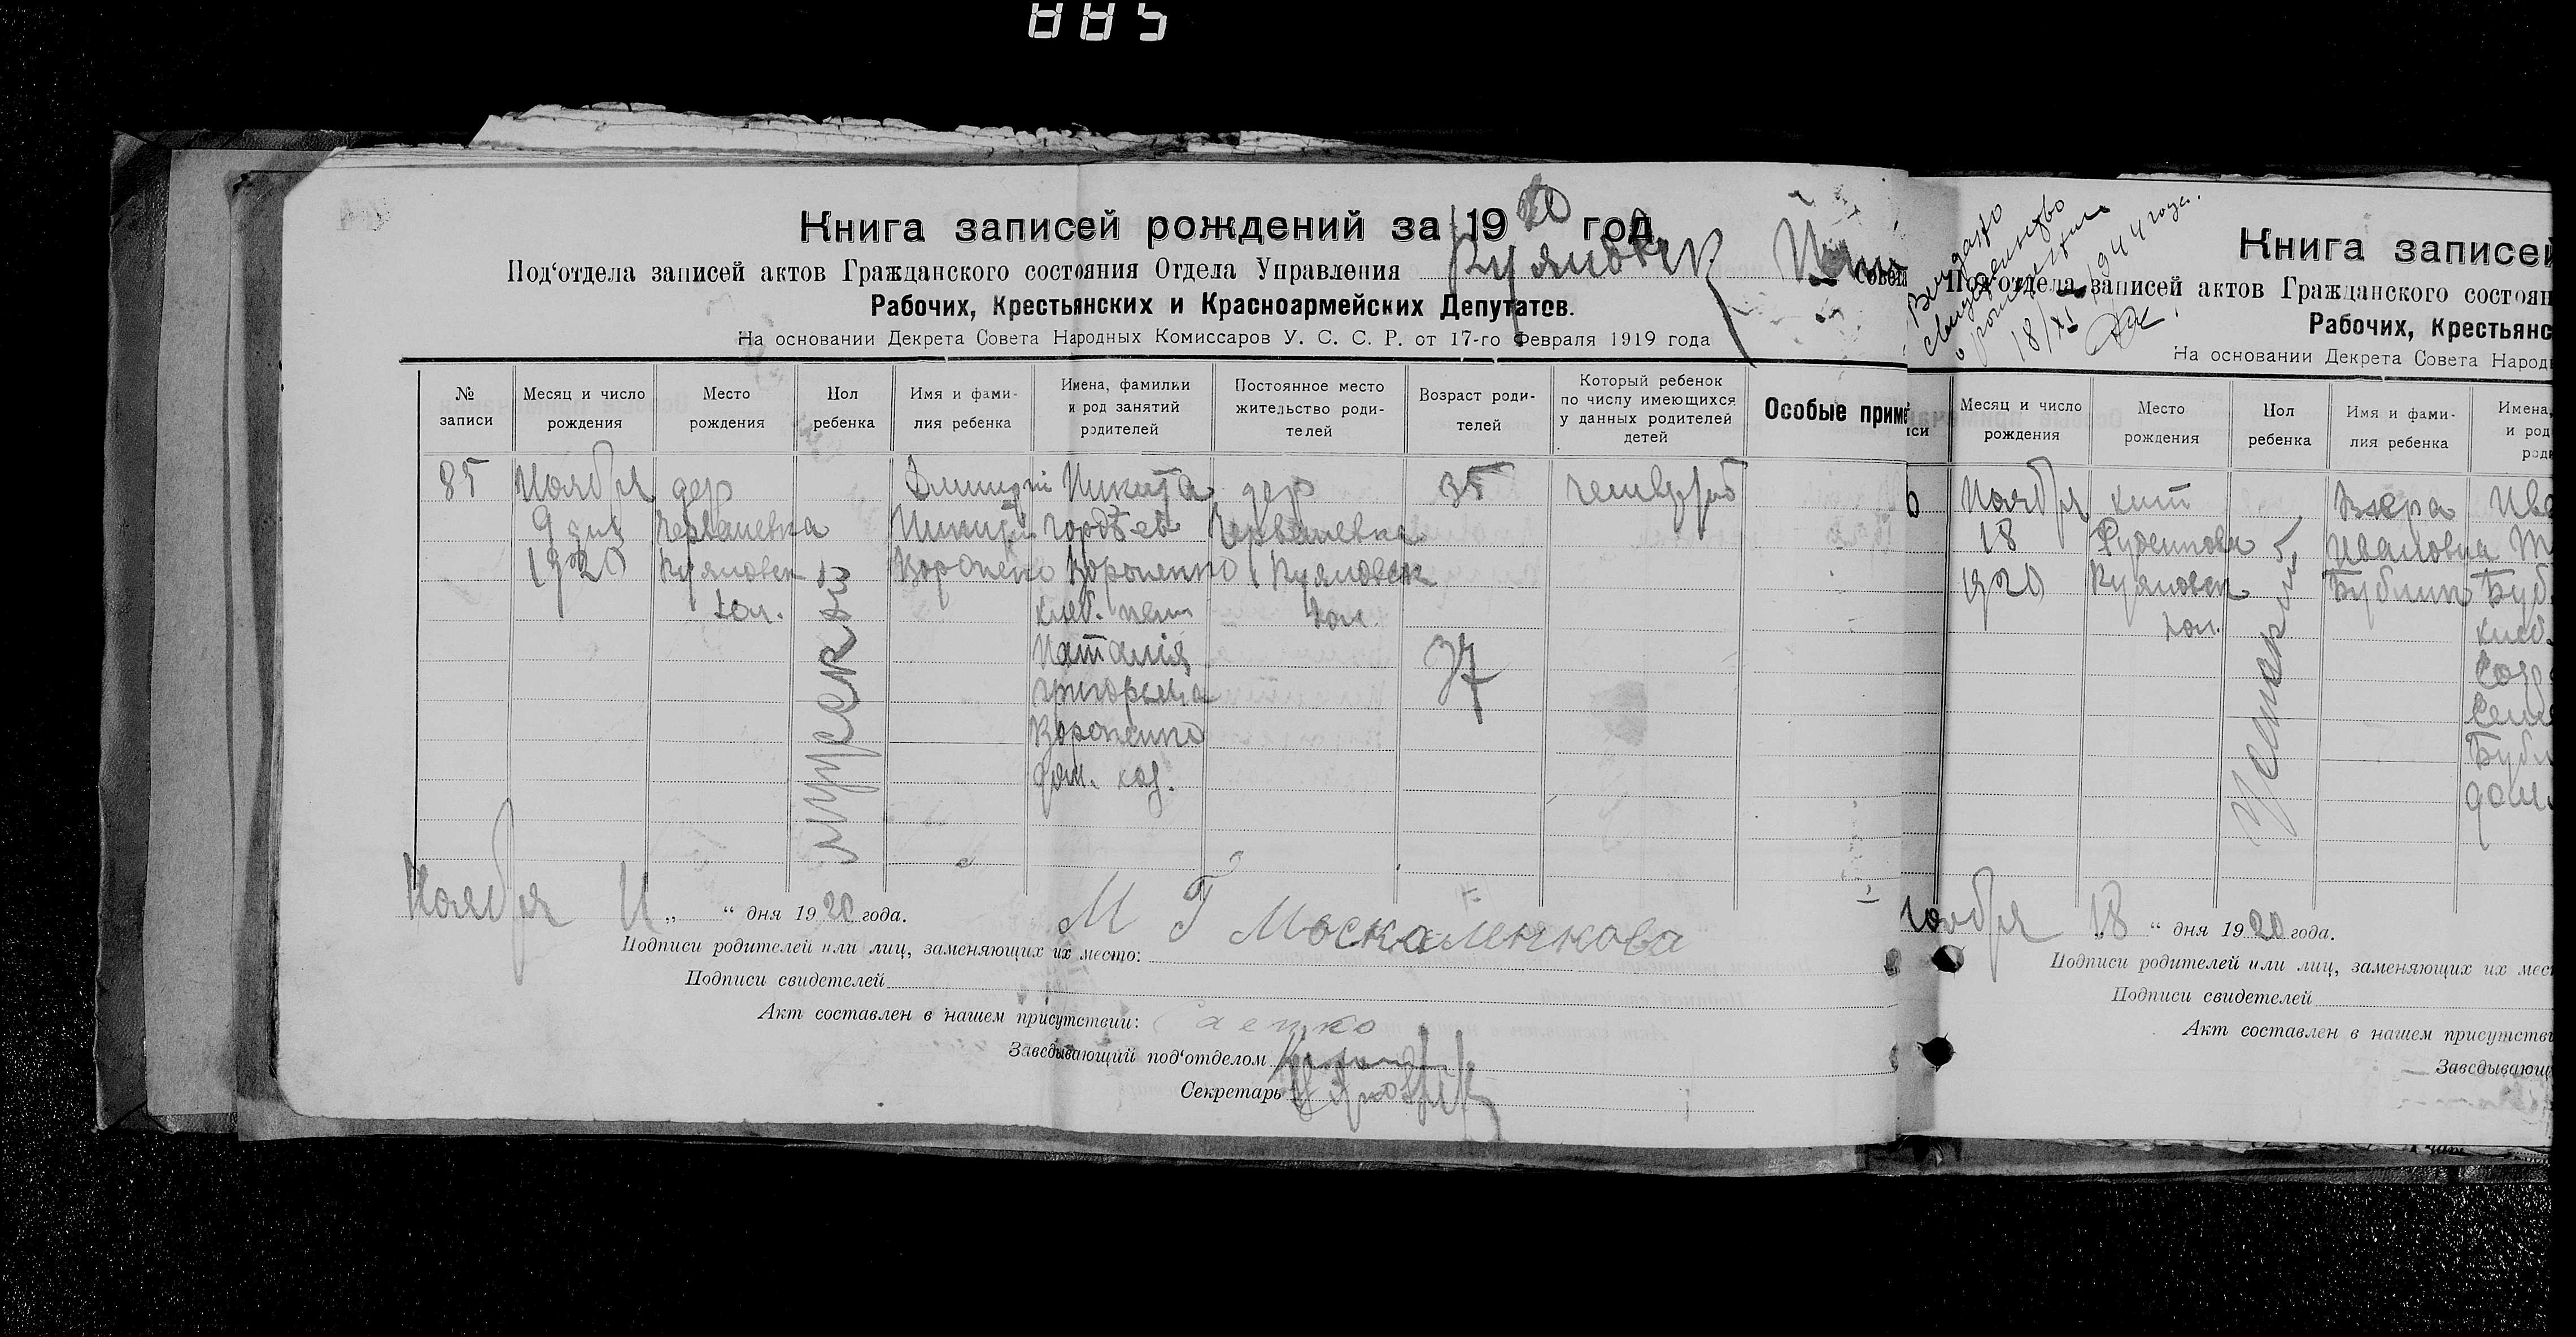 885
Книга записей рождений за 1920 год
Под‘отдела записей актов Гражданского состояния Отдела Управления Куяновск Совета
Рабочих, Крестьянских и Красноармейских Депутатов.
На основании Декрета Совета Народных Комиссаров У. С. С. Р. от 17-го февраля 1919 года
№ записи
Месяц и число рождения
Место рождения
Пол ребенка
Имя и фами-
лия ребенка
Имена, фамилии
и род занятий
родителей
Постоянное место
жительство роди-
телей
Возраст роди-
телей
Который ребенок
по числу имеющихся
у данных родителей
детей
Особые приме
85
Ноября
9 дня
1920
дер
Куяновск
вол.
мужской
Димитрий
Никит
Вороненко
Никита
Гордѣев
Вороненко
хлеб. паш
Наталія
Григорьевна
Вороненко
дом. хоз.
дер
Куяновск
вол
35
37
четвертый
Ноября 11 „ “ дня 1920 года.
Подписи родителей или лиц, заменяющих их место: М Г Москаленкова
Подписи свидетелей
Акт составлен в нашем присутствии:
Заведывающий под‘отделом
Секретарь
Выдано
свидетельство
о рождении
18/XI 1944 года.
Книга записей
Под‘отдела записей актов Гражданского состоян
Рабочих, Крестьянс
На основании Декрета Совета Народн
си
Месяц и число
рождения
Место
рождения
Пол
ребенка
Имя и фами-
лия ребенка
Имена,
и род
роди
Ноября
18
1920
Куяновск
вол.
Женский
Вера
Ивановна
Бублик
Ива
Буб
хлеб.
Бубл
дом.
Ноября 18 “ дня 1920 года.
Подписи родителей или лиц, заменяющих их мес
Подписи свидетелей
Акт составлен в нашем присутстви
Заведывающ